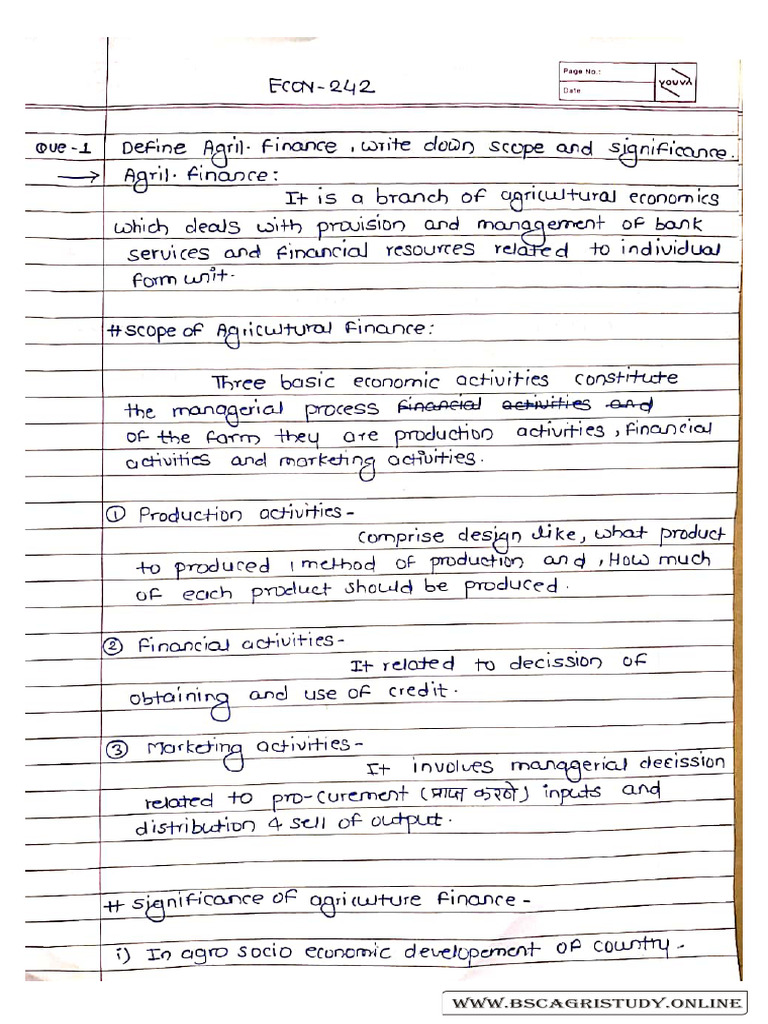 ECON-242
Page No.:
Date
YOUVA
Que-1 Define Agril. Finance, write down scope and significance.
→ Agril. Finance:
It is a branch of agricultural economics
which deals with provision and management of bank
services and financial resources related to individual
form unit.
# Scope of Agricultural Finance:
Three basic economic activities constitute
the managerial process financial activities and
of the form they are production activities, financial
activities and marketing activities.
① Production activities-
comprise design like, what product
to produced, method of production and, How much
of each product should be produced.
② Financial activities-
It related to decission of
obtaining and use of credit.
③ Marketing activities-
It involves managerial decission
related to pro-curement (प्राप्त करणे) inputs and
distribution & sell of output.
# Significance of agriculture finance-
i) In agro socio economic developement of country.
WWW.BSCAGRISTUDY.ONLINE